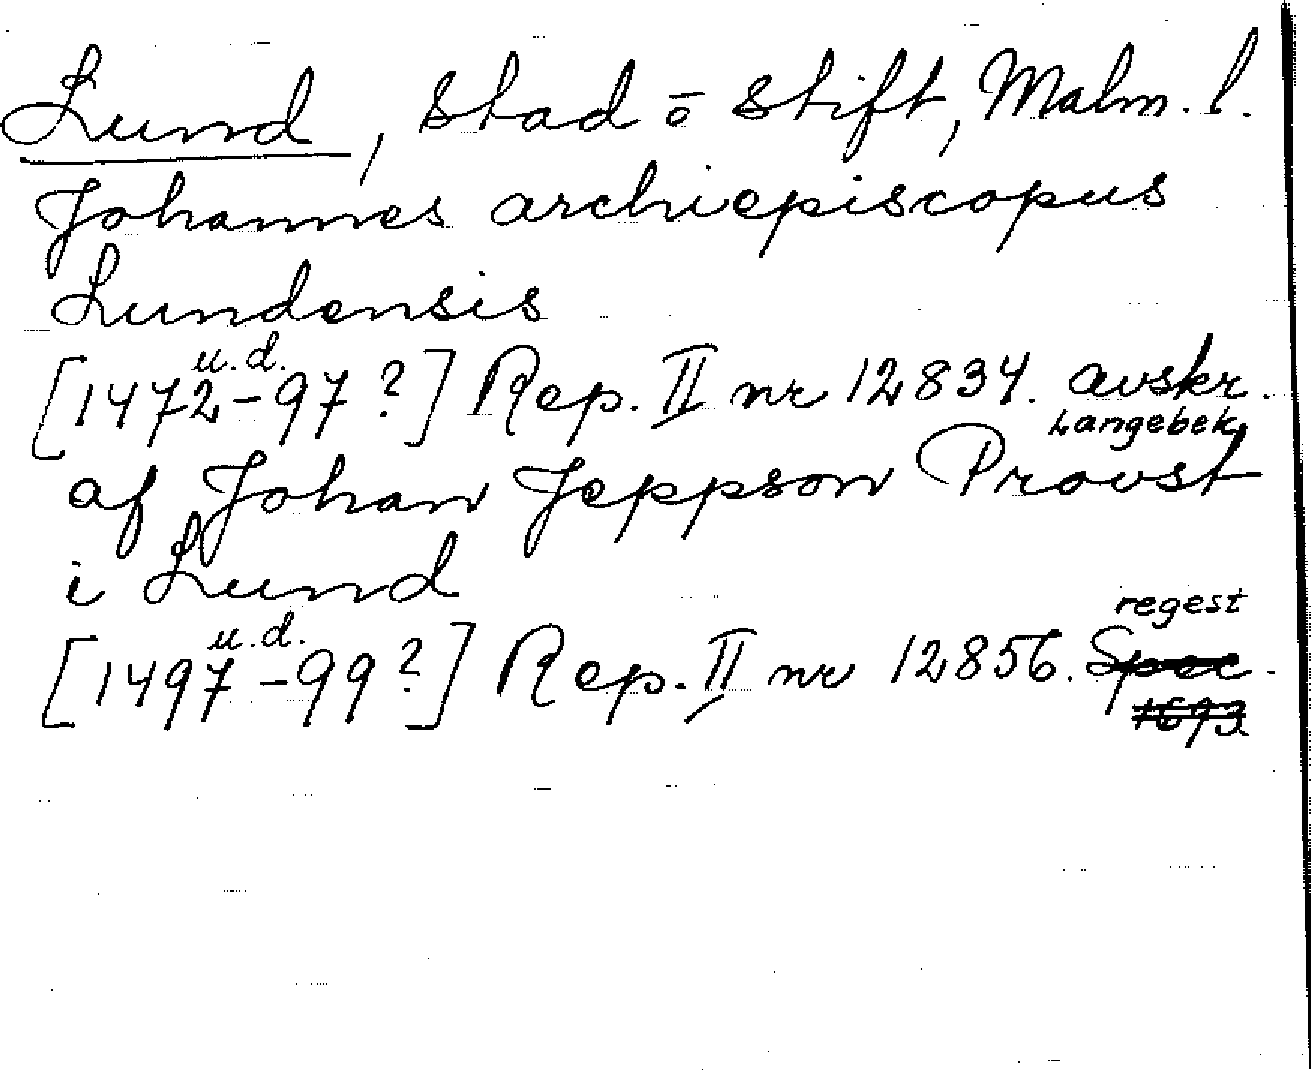 Lund, Stad ō Stift, Malm. l.
Johannes archiepiscopus
Lundensis
u.d.
[1472-97?] Rep. II nr 12834. avskr.
Langebek
af Johan Jeppson Provst
i Lund
regest
u.d.
[1497-99?] Rep. II nr 12856. Spec.
1693